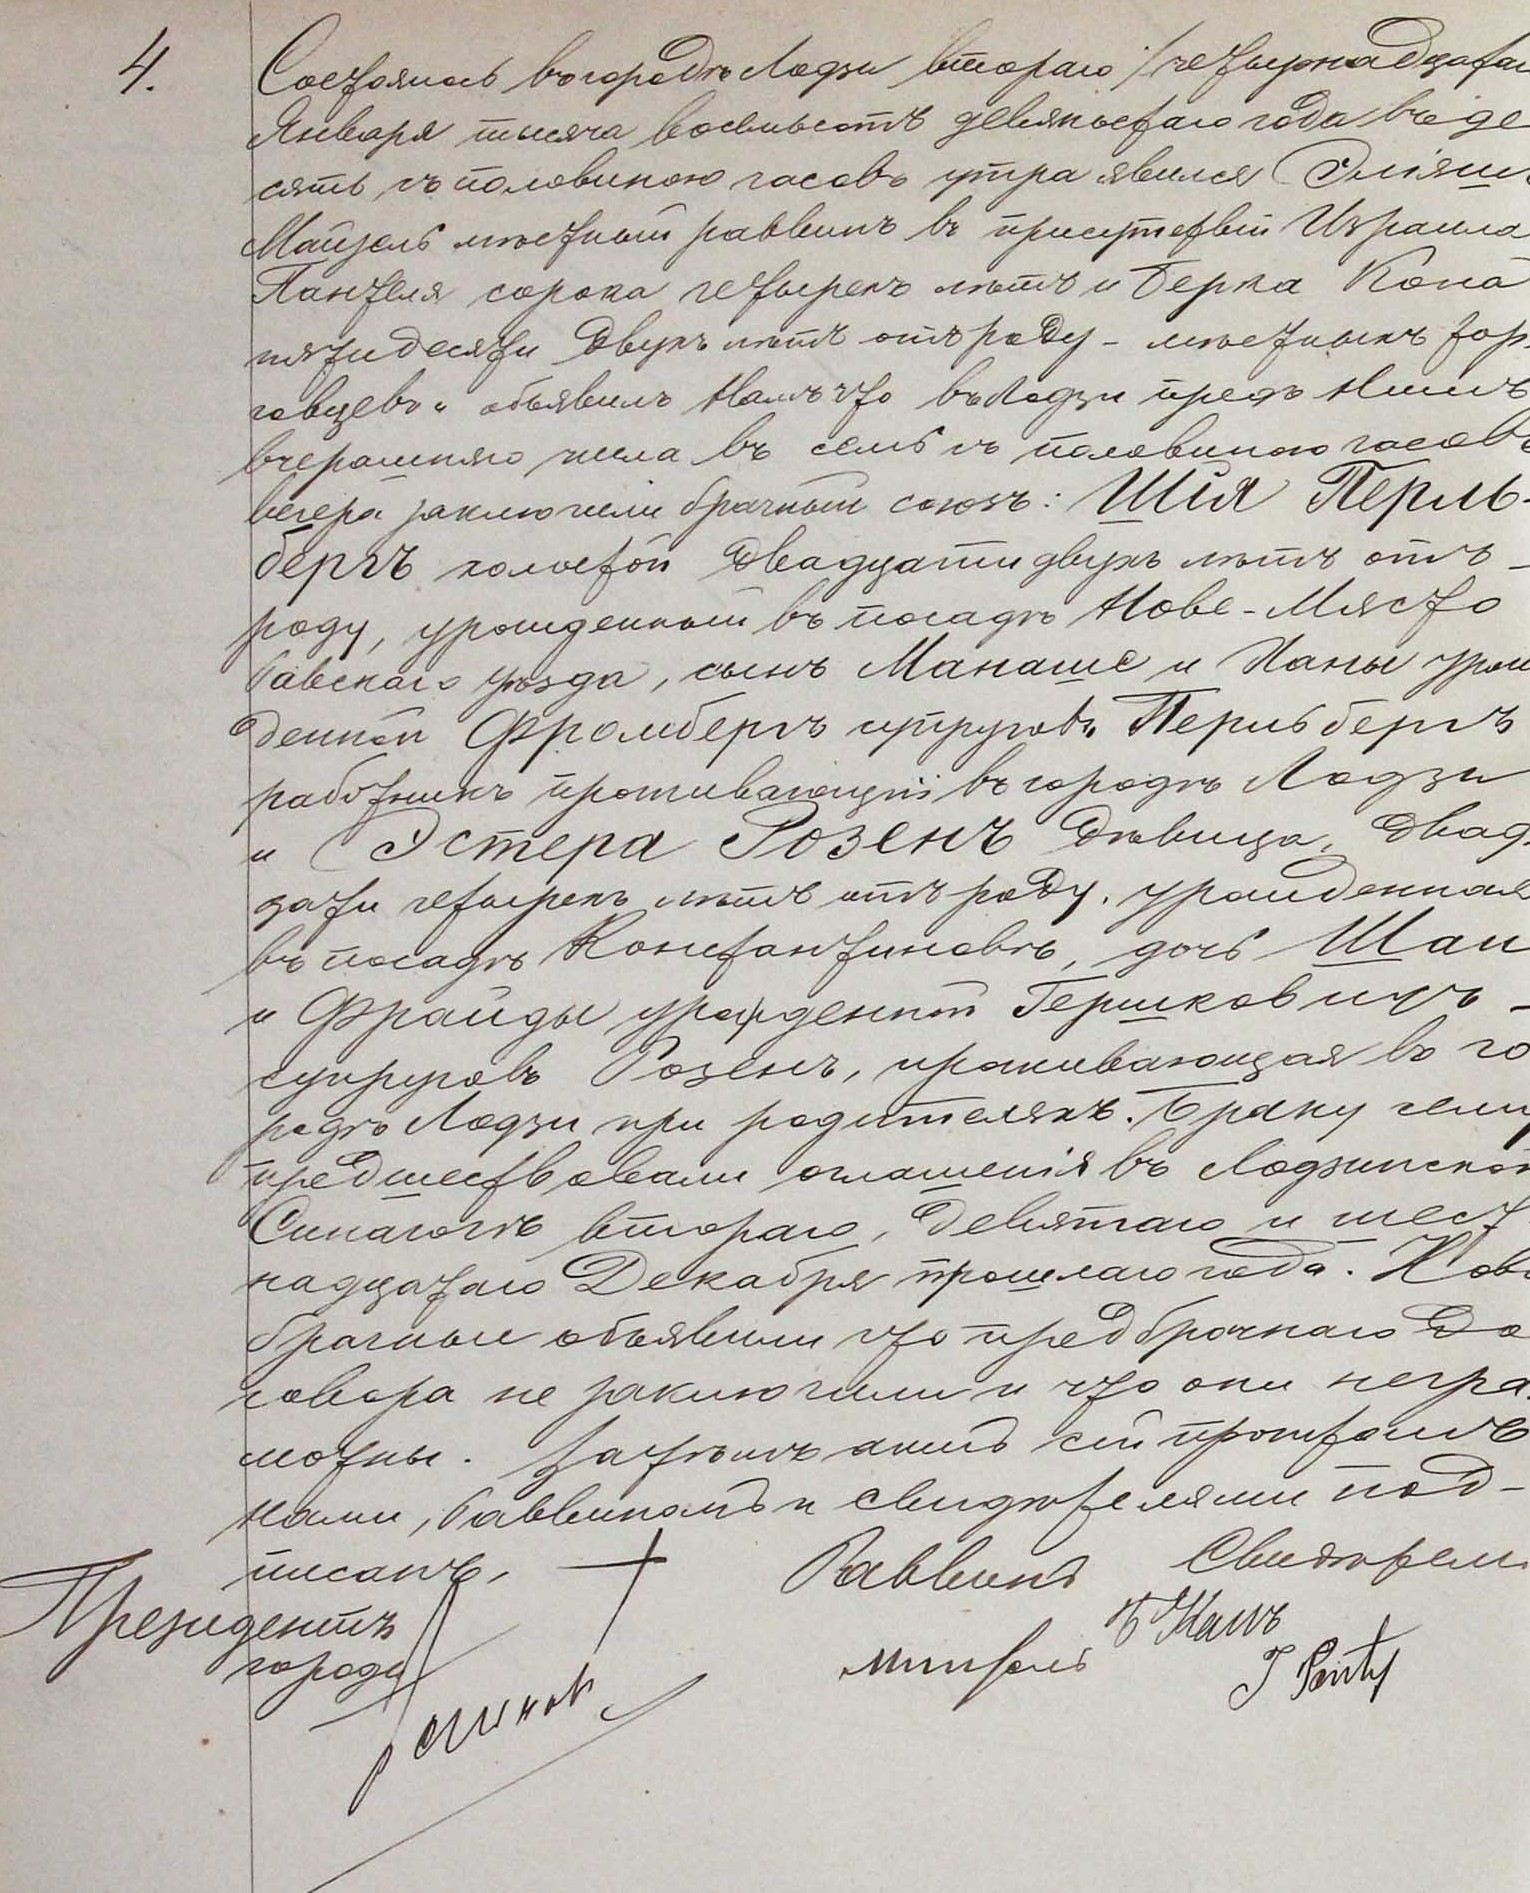 4.
Состоялось въ городѣ Лодзи втораго /четырнадцатаго
Января тысяча восемьсотъ девяностаго года въ де
сять съ половиною часовъ утра явился Эліяшъ
Майзель мѣстный раввинъ въ присутствіи Израиля
Пантеля сорока четырехъ лѣтъ и Берка Кона
пятидесяти двухъ лѣтъ отъ роду - мѣстныхъ тор-
говцевъ и объявилъ Намъ что въ Лодзи предъ Нимъ
вчерашняго числа въ семь съ половиною часовъ
вечера заключили брачный союзъ: Шія Перль-
бергъ холостой двадцати двухъ лѣтъ отъ -
роду, урожденный въ посадѣ Нове-Място
Равскаго уѣзда, сынъ Манаше и Ханы урож
денной Фромбергъ супруговъ Перльбергъ
работникъ проживающій въ городѣ Лодзи
и Эстера Розенъ дѣвица, двад-
цати четырехъ лѣтъ отъ роду, урожденная
въ посадѣ Константиновѣ, дочь Шаи
и Фрайды урожденной Гершковичъ -
супруговъ Розенъ, проживающая въ го
родѣ Лодзи при родителяхъ. Браку сему
предшествовали оглашенія въ Лодзинской
Синагогѣ втораго, девятаго и шест
надцатаго Декабря прошлаго года. Ново
брачные объявили что предбрачнаго до
говора не заключили и что они негра-
мотны. Затѣмъ актъ сей прочтенъ
нами, Раввиномъ и свидѣтелями под-
писанъ.
Раввинъ Свидѣтели
Президентъ
города
Майзель Б Канъ